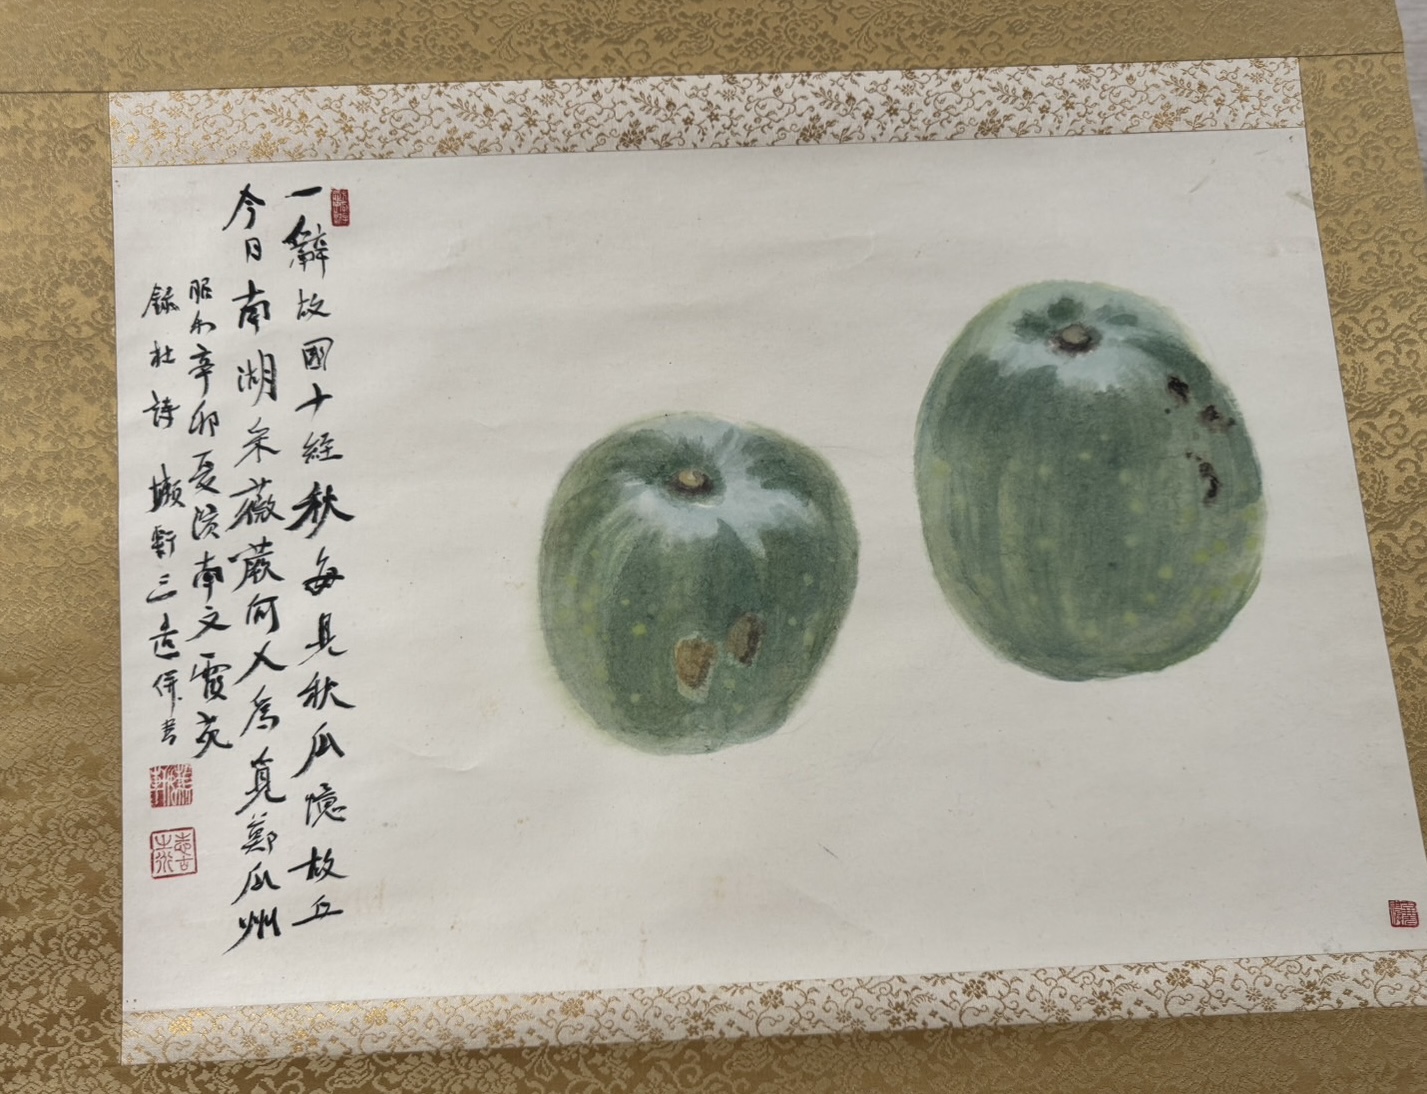 一辭故國十經秋每見秋瓜憶故丘
今日南湖采薇蕨何人為覓鄭瓜州
昭和辛卯夏浜南文霞苑
錄杜詩 懶軒三造併書